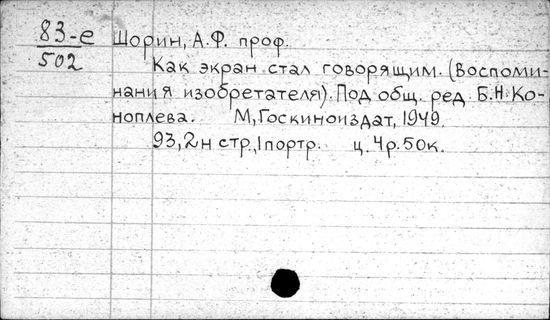 83-е Шорин, А.Ф. проф.
502
Как экран стал говорящим. (Воспоми-
нания изобретателя). Под общ. ред. Б.Н. Ко-
ноплева. М, Госкиноиздат, 1949.
93, 2н стр., 1 портр. ц. 4р. 50к.